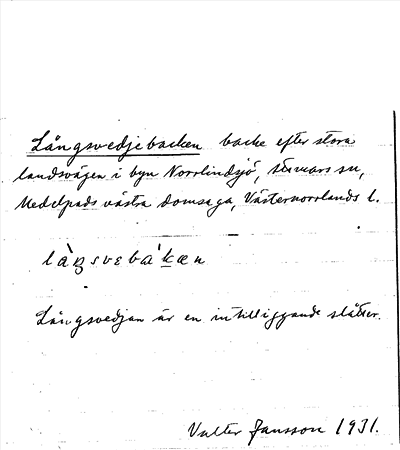 Långsvedjebacken backe efter stora
landsvägen i byn Norrlindsjö, Stöde sn,
Medelpads västra domsaga, Västernorrlands l.
Långsvedjan är en intilliggande slåtter.
Valter Jansson 1931.